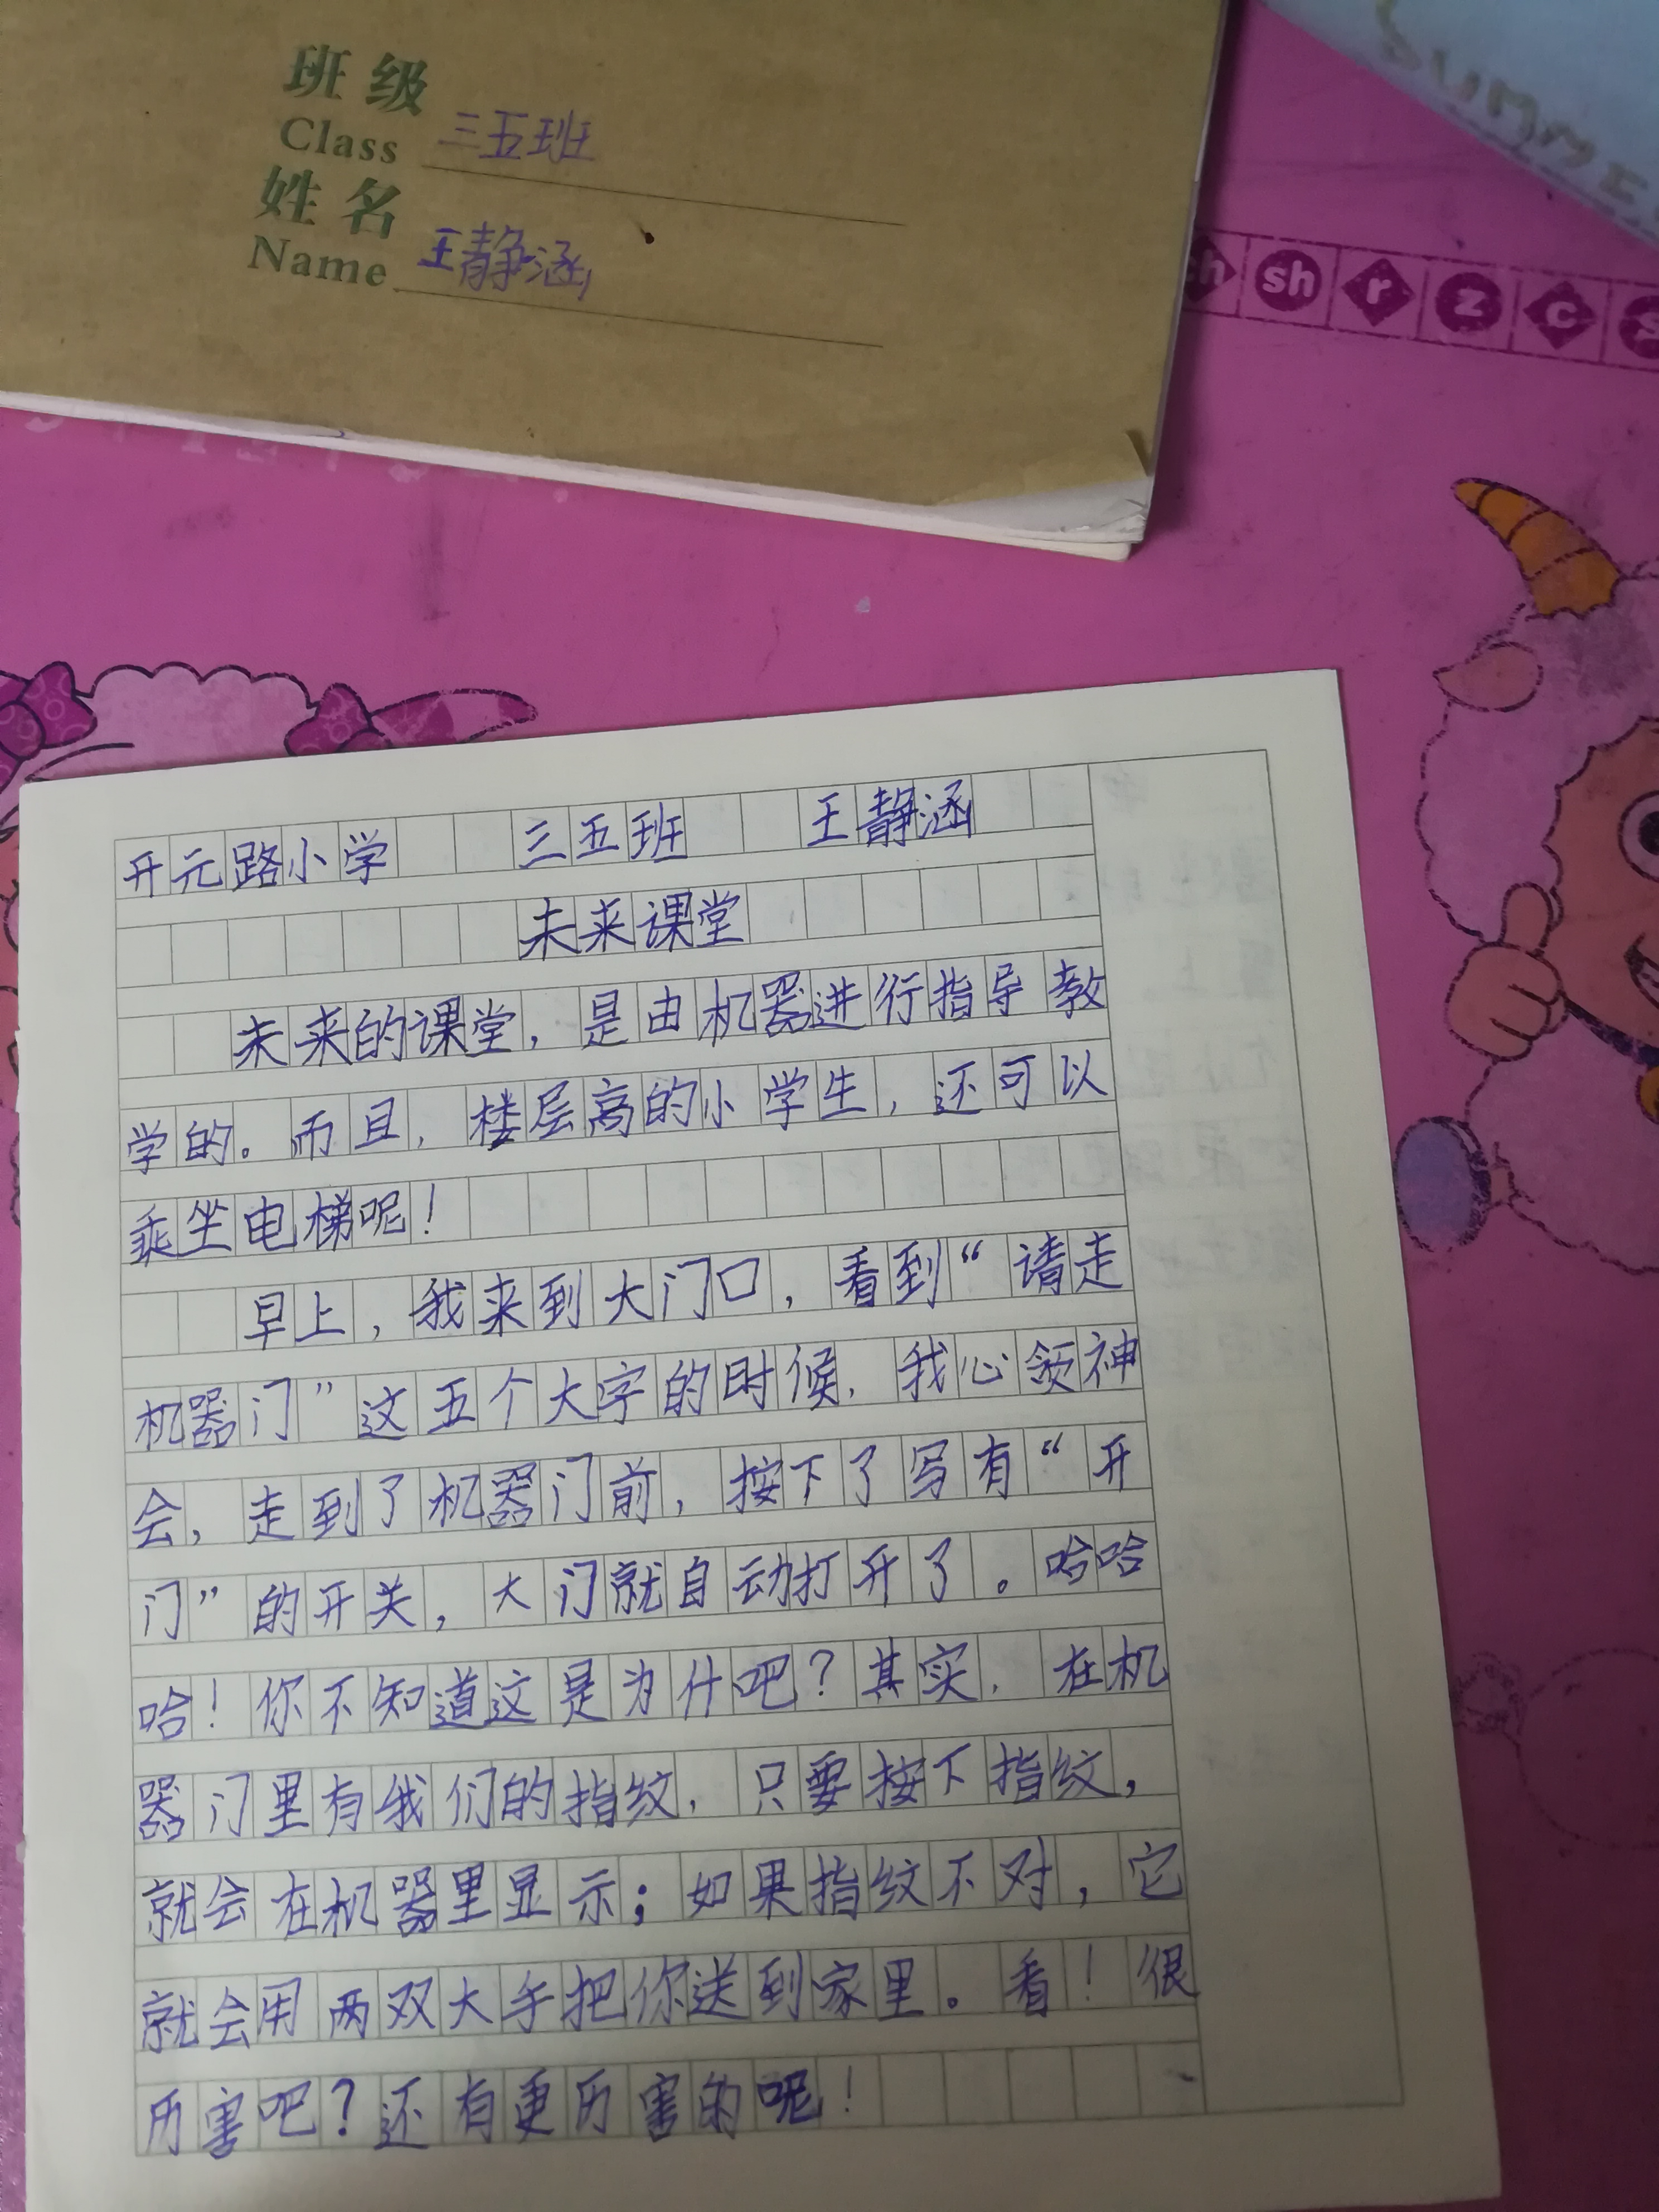 班级
Class 三五班
姓名
Name 王静涵
SUMME
ch sh r z c s
开元路小学 三五班 王静涵
未来课堂
未来的课堂，是由机器进行指导教
学的。而且，楼层高的小学生，还可以
乘坐电梯呢！
早上，我来到大门口，看到“请走
机器门”这五个大字的时候，我心领神
会，走到了机器门前，按下了写有“开
门”的开关，大门就自动打开了。哈哈
哈！你不知道这是为什吧？其实，在机
器门里有我们的指纹，只要按下指纹，
就会在机器里显示；如果指纹不对，它
就会用两双大手把你送到家里。看！很
历害吧？还有更历害的呢！